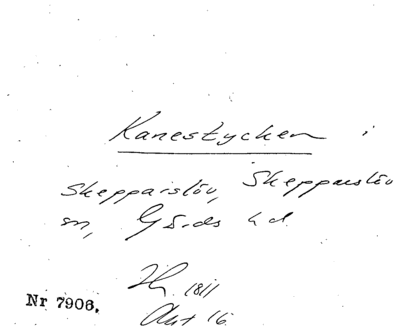 Kanestycken i
Skepparslöv, Skepparslöv
sn, Gärds hd.
18/1
Akt 16
Nr 7906.